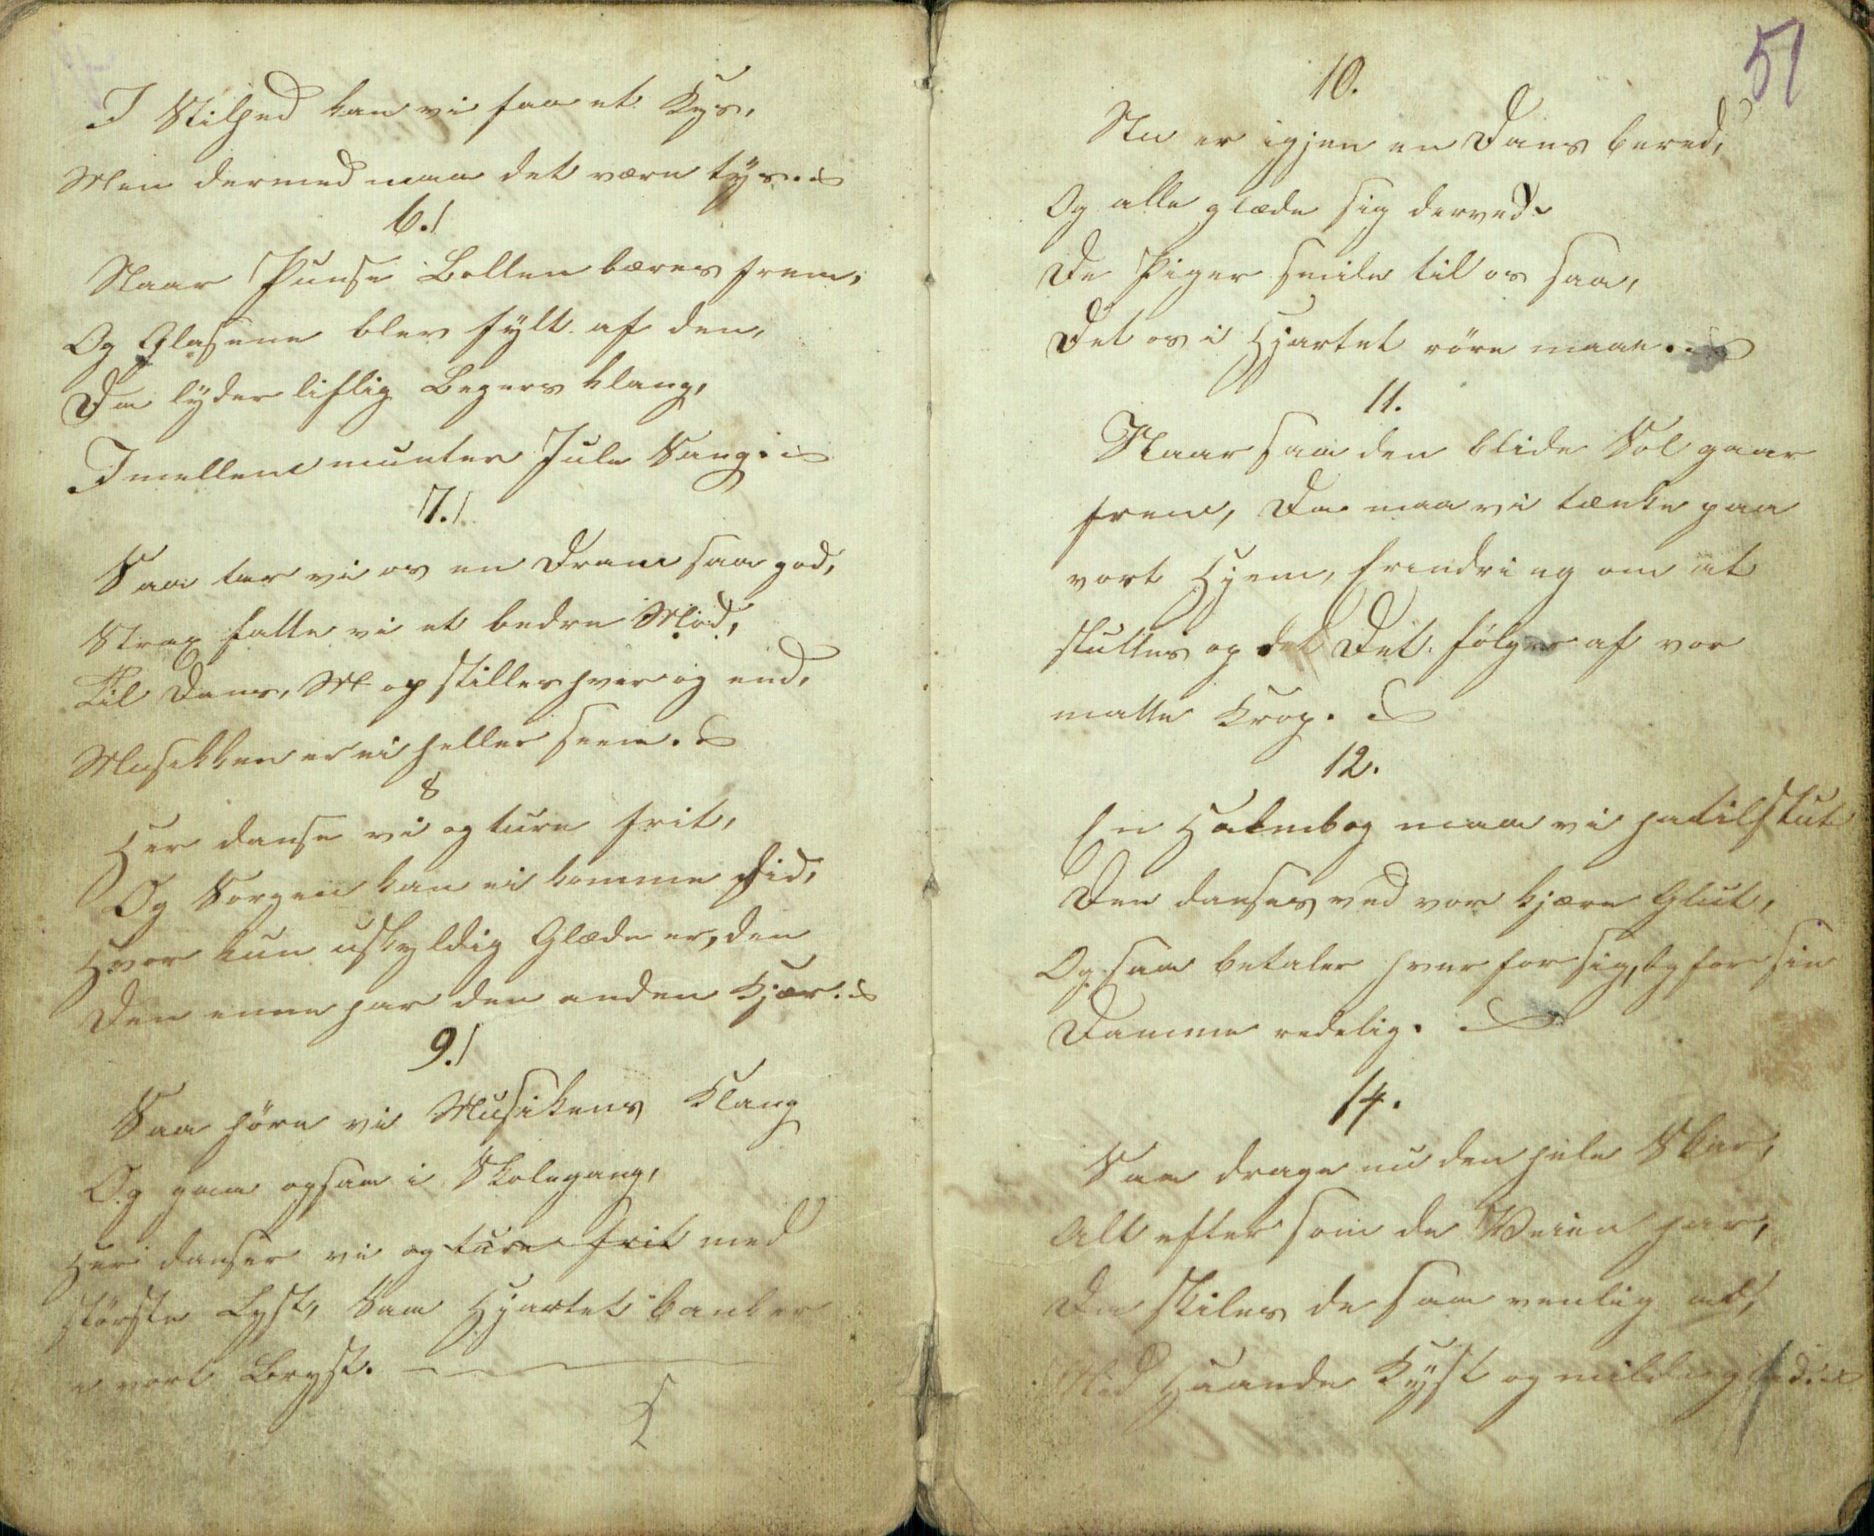 I Stilhed kan vi faa et Kys,
Men dermed maa det være tÿs.
6.
Naar Punse Bollen bæres frem,
Og Glasene blev fÿlt af den,
Da lÿder liflig Begers klang,
Imellem munter Jule Sang.
7.
Saa tar vi os en Dram saa god,
Strax fatte vi et bedre Mod,
Til Dans, M opstilles hver og end,
Musikken er ei heller seen.
8
Her danse vi og ture frit,
Og Sorgen kan ei komme hid,
Hvor kun uskyldig Glæde er, den
Den enne har den anden Kjær.
9.
Saa höre vi Musikens Klang
Og gaa ogsaa i Skolegang,
Her danser vi og ture frit med
störste Lyst, Saa Hjartet banker
i vort Bryst.
51
10.
Nu er igjen en Dans bered,
Og alle glæde sig derved
De Piger smile til os saa,
Det os i Hjartet röre maae.
11.
Naar saa den blide Sol gaar
frem, Da maa vi tænke paa
vort Hjem, Erindring om at
sluttes op det Det følger af vor
matte Krop.
12.
En Halmbog maa vi ha tilslut
Den danses ved vor kjære Glut,
Og saa betaler hver for sig, Og for sin
Damme redelig.
14.
Saa drage nu den hele Skar,
Alt efter som de Veien har,
Da skiles de saa venlig ad,
Med Haande Kÿst og milde